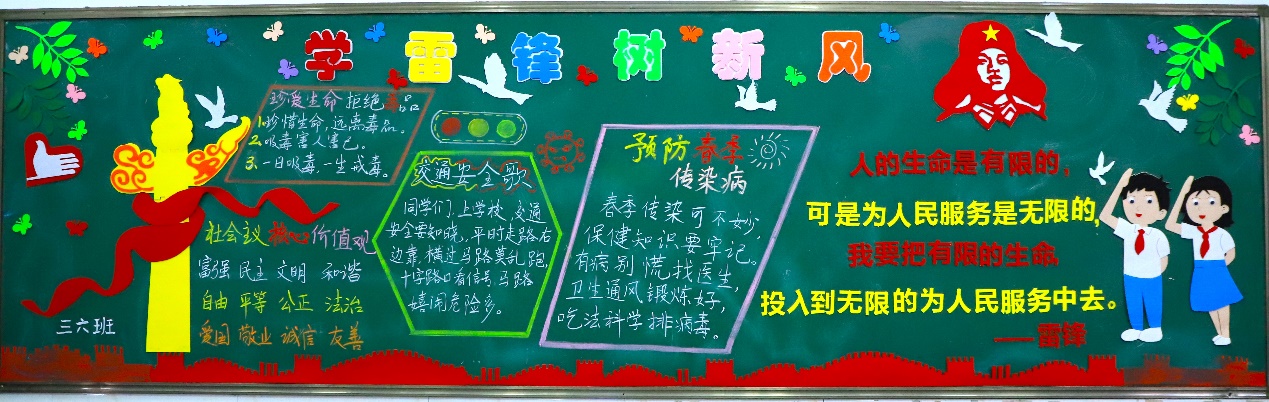 学雷锋树新风
珍爱生命 拒绝毒品
1.珍惜生命,远离毒品。
2.吸毒害人害己。
3.一日吸毒,一生戒毒。
社会主义核心价值观
富强 民主 文明 和谐
自由 平等 公正 法治
爱国 敬业 诚信 友善
三六班
交通安全歌
同学们,上学校,交通
安全要知晓,平时走路右
边靠,横过马路莫乱跑,
十字路口看信号,马路
嬉闹危险多。
预防春季
传染病
春季传染可不妙,
保健知识要牢记。
有病别慌找医生,
卫生通风锻炼好,
吃法科学排病毒。
人的生命是有限的,
可是为人民服务是无限的,
我要把有限的生命,
投入到无限的为人民服务中去。
——雷锋